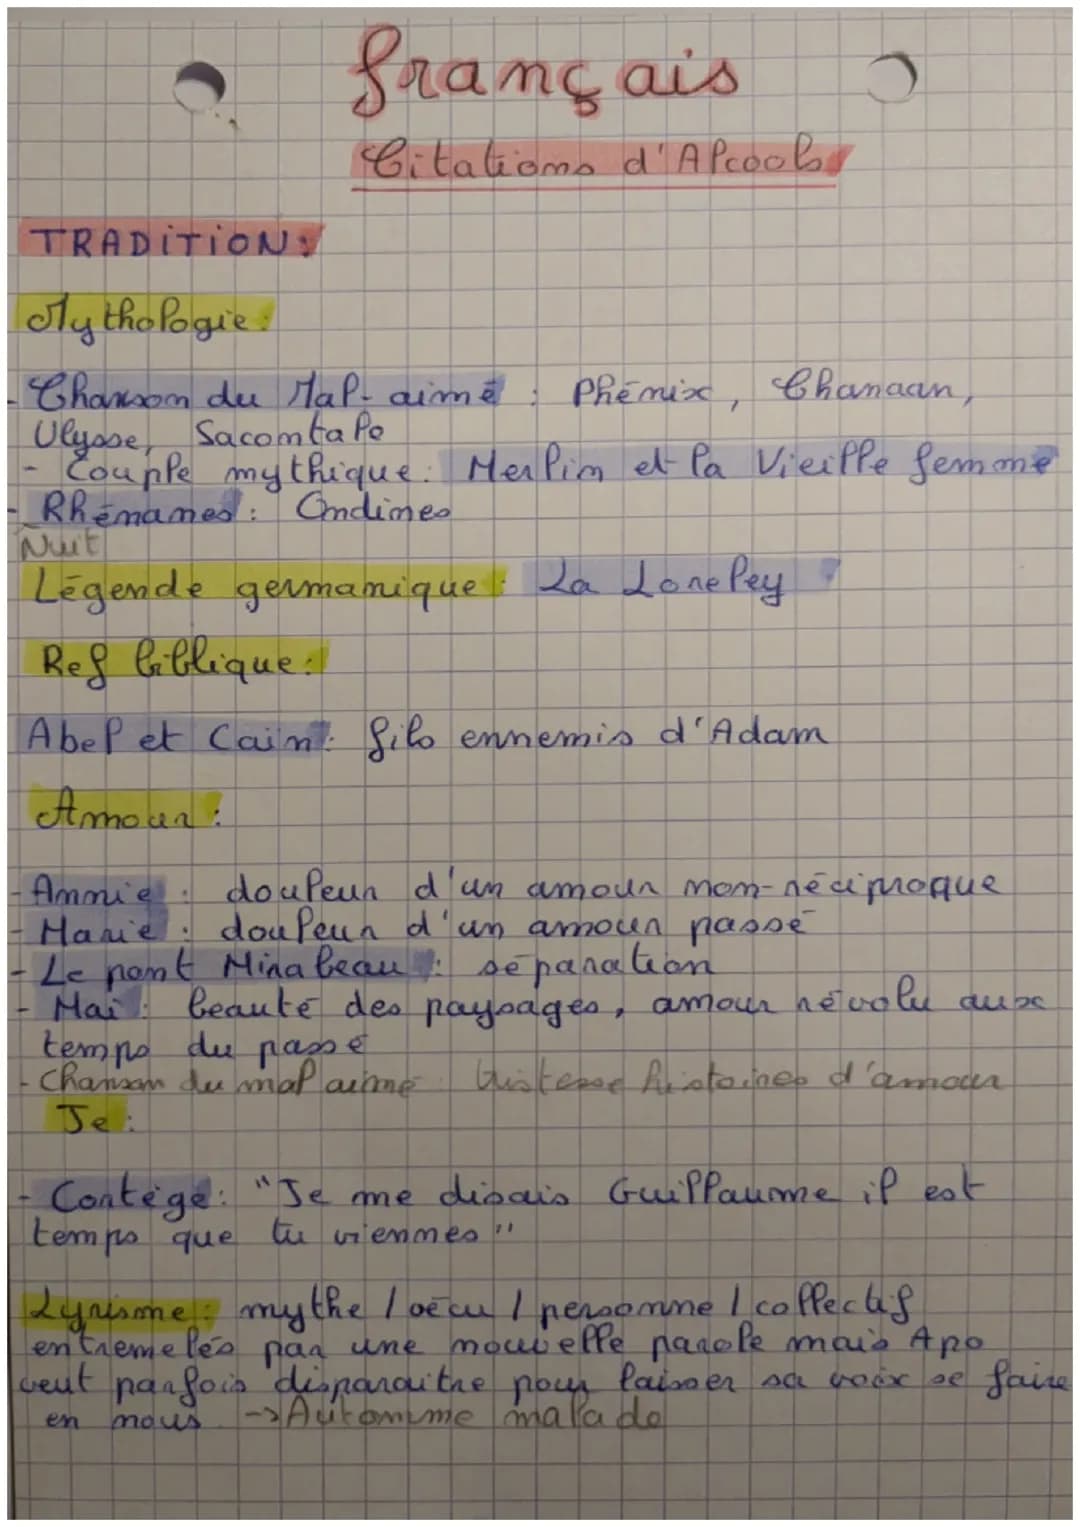 français
Citations d'Alcools
TRADITION:
Mythologie:
- Chanson du Mal-aimé : Phénix, Chanaan,
Ulysse, Sacontale
- Couple mythique: Merlin et la Vieille femme
- Rhénanes: Ondines
Nuit
Légende germanique: La Loreley
Ref biblique:
Abel et Caïn: fils ennemis d'Adam
Amour:
- Annie: douleur d'un amour non-réciproque
- Marie: douleur d'un amour passé
- Le pont Mirabeau: séparation
- Mai: beauté des paysages, amour révolu aux
temps du passé
- Chanson du mal aimé tristesse histoires d'amour
Je:
- Cortège: "Je me disais Guillaume il est
temps que tu viennes"
Lyrisme: mythe / vécu / personne / collectif
entremelés par une nouvelle parole mais Apo
veut parfois disparaitre pour laisser sa voix se faire
en nous -> Automne malade